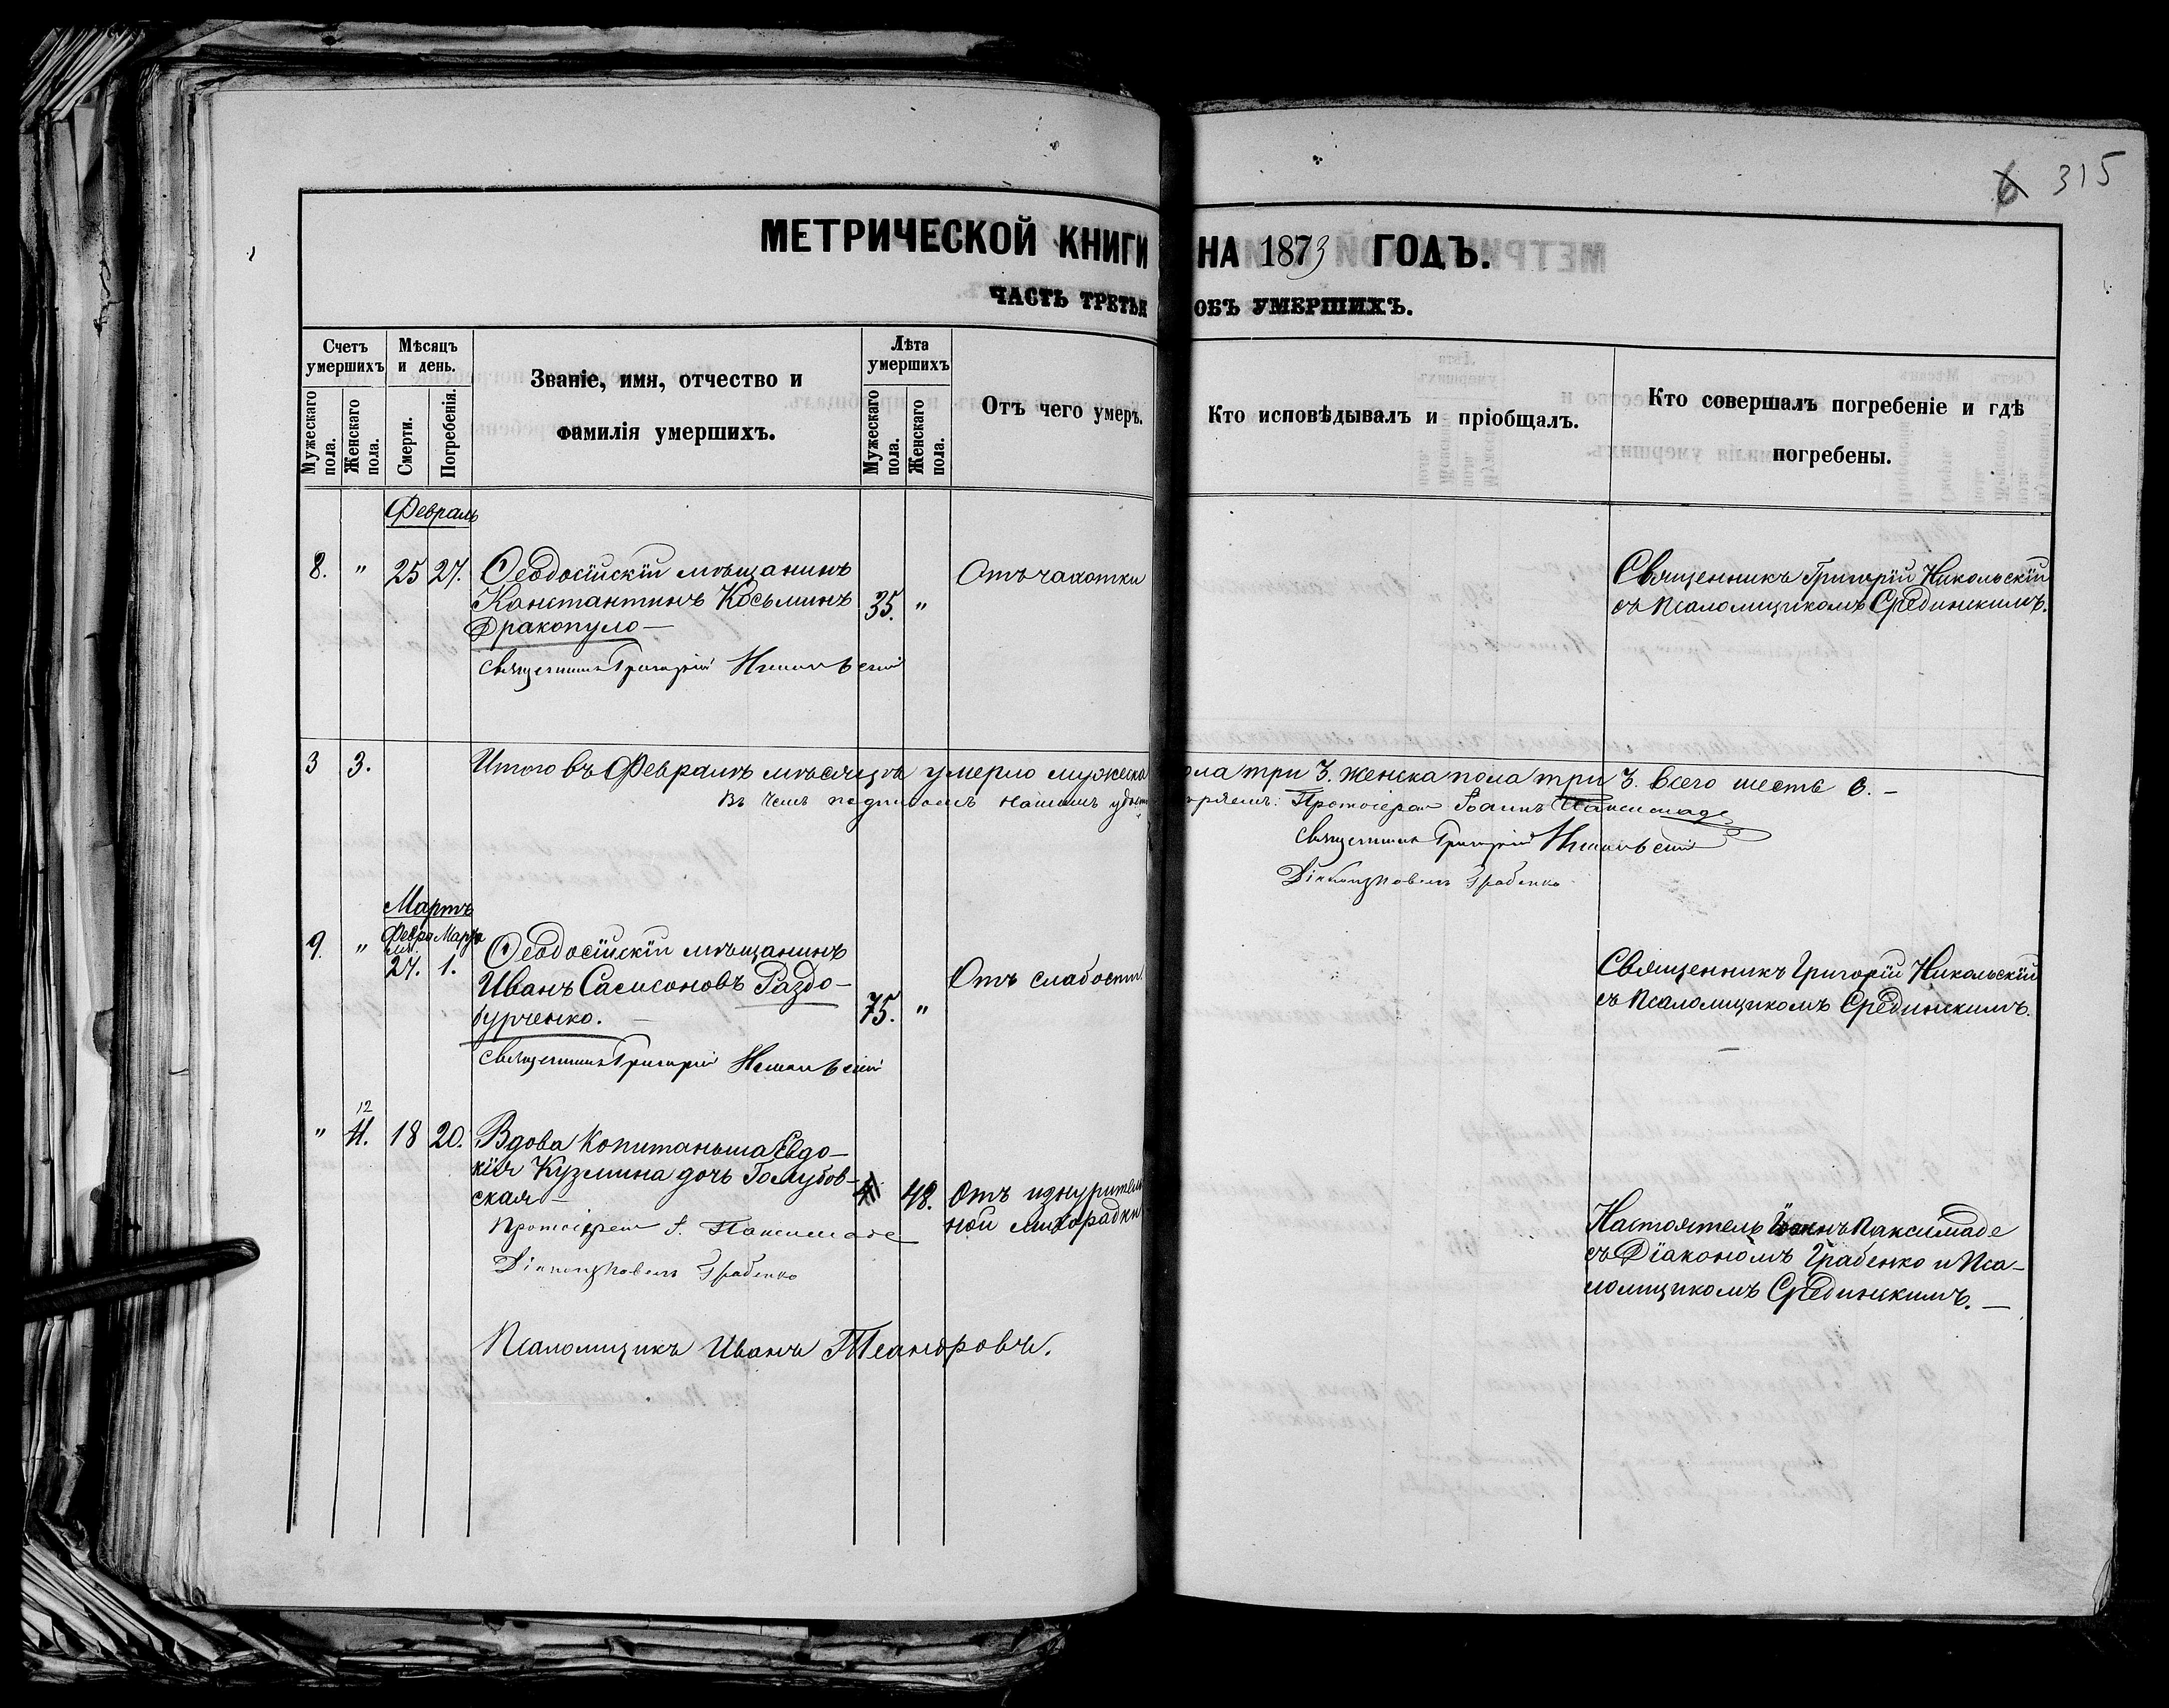 315
МЕТРИЧЕСКОЙ КНИГИ НА 1873 ГОДЪ.
ЧАСТЬ ТРЕТЬЯ ОБЪ УМЕРШИХЪ.
Счетъ умершихъ
Мужескаго пола.
Женскаго пола.
Мѣсяцъ и день.
Смерти.
Погребенія.
Званіе, имя, отчество и
фамилія умершихъ.
Лѣта умершихъ
Мужескаго пола.
Женскаго пола.
Отъ чего умеръ.
Кто исповѣдывалъ и пріобщалъ.
Кто совершалъ погребеніе и гдѣ
погребены.
Февраль
8. " 25 27. Ѳеодосійскій мѣщанинъ
Константинъ Косьминъ 35. "
Дракопуло—
Священникъ Григорій Никольскій
Отъ чахотки
Священникъ Григорій Никольскій
съ Псаломщикомъ Срединскимъ.
3 3. Итого въ Февралѣ мѣсяцѣ умерло мужеска пола три 3. женска пола три 3. Всего шесть 6.—
Въ чемъ подписомъ нашимъ удостовѣряемъ: Протоіерей Іоаннъ Паксимаде
Священникъ Григорій Никольскій
Діаконъ Павелъ Грабенко
Мартъ
Февра Марта
ля
9. " 27. 1. Ѳеодосійскій мѣщанинъ
Иванъ Самсоновъ Раздо-
бурченко.— 75. "
Священникъ Григорій Никольскій
Отъ слабости
Священникъ Григорій Никольскій
съ Псаломщикомъ Срединскимъ.
—
12
" 11. 18 20. Вдова Копитаньша Евдо-
кія Кузмина дочь Голубов-
ская— 48.
Отъ изнурител
ной лихорадки
Протоіерей І. Паксимаде
Діаконъ Павелъ Грабенко
Настоятель Іоаннъ Паксимаде
съ Діакономъ Грабенко и Пса-
ломщикомъ Срединскимъ.—
Псаломщикъ Иванъ Теандровъ.